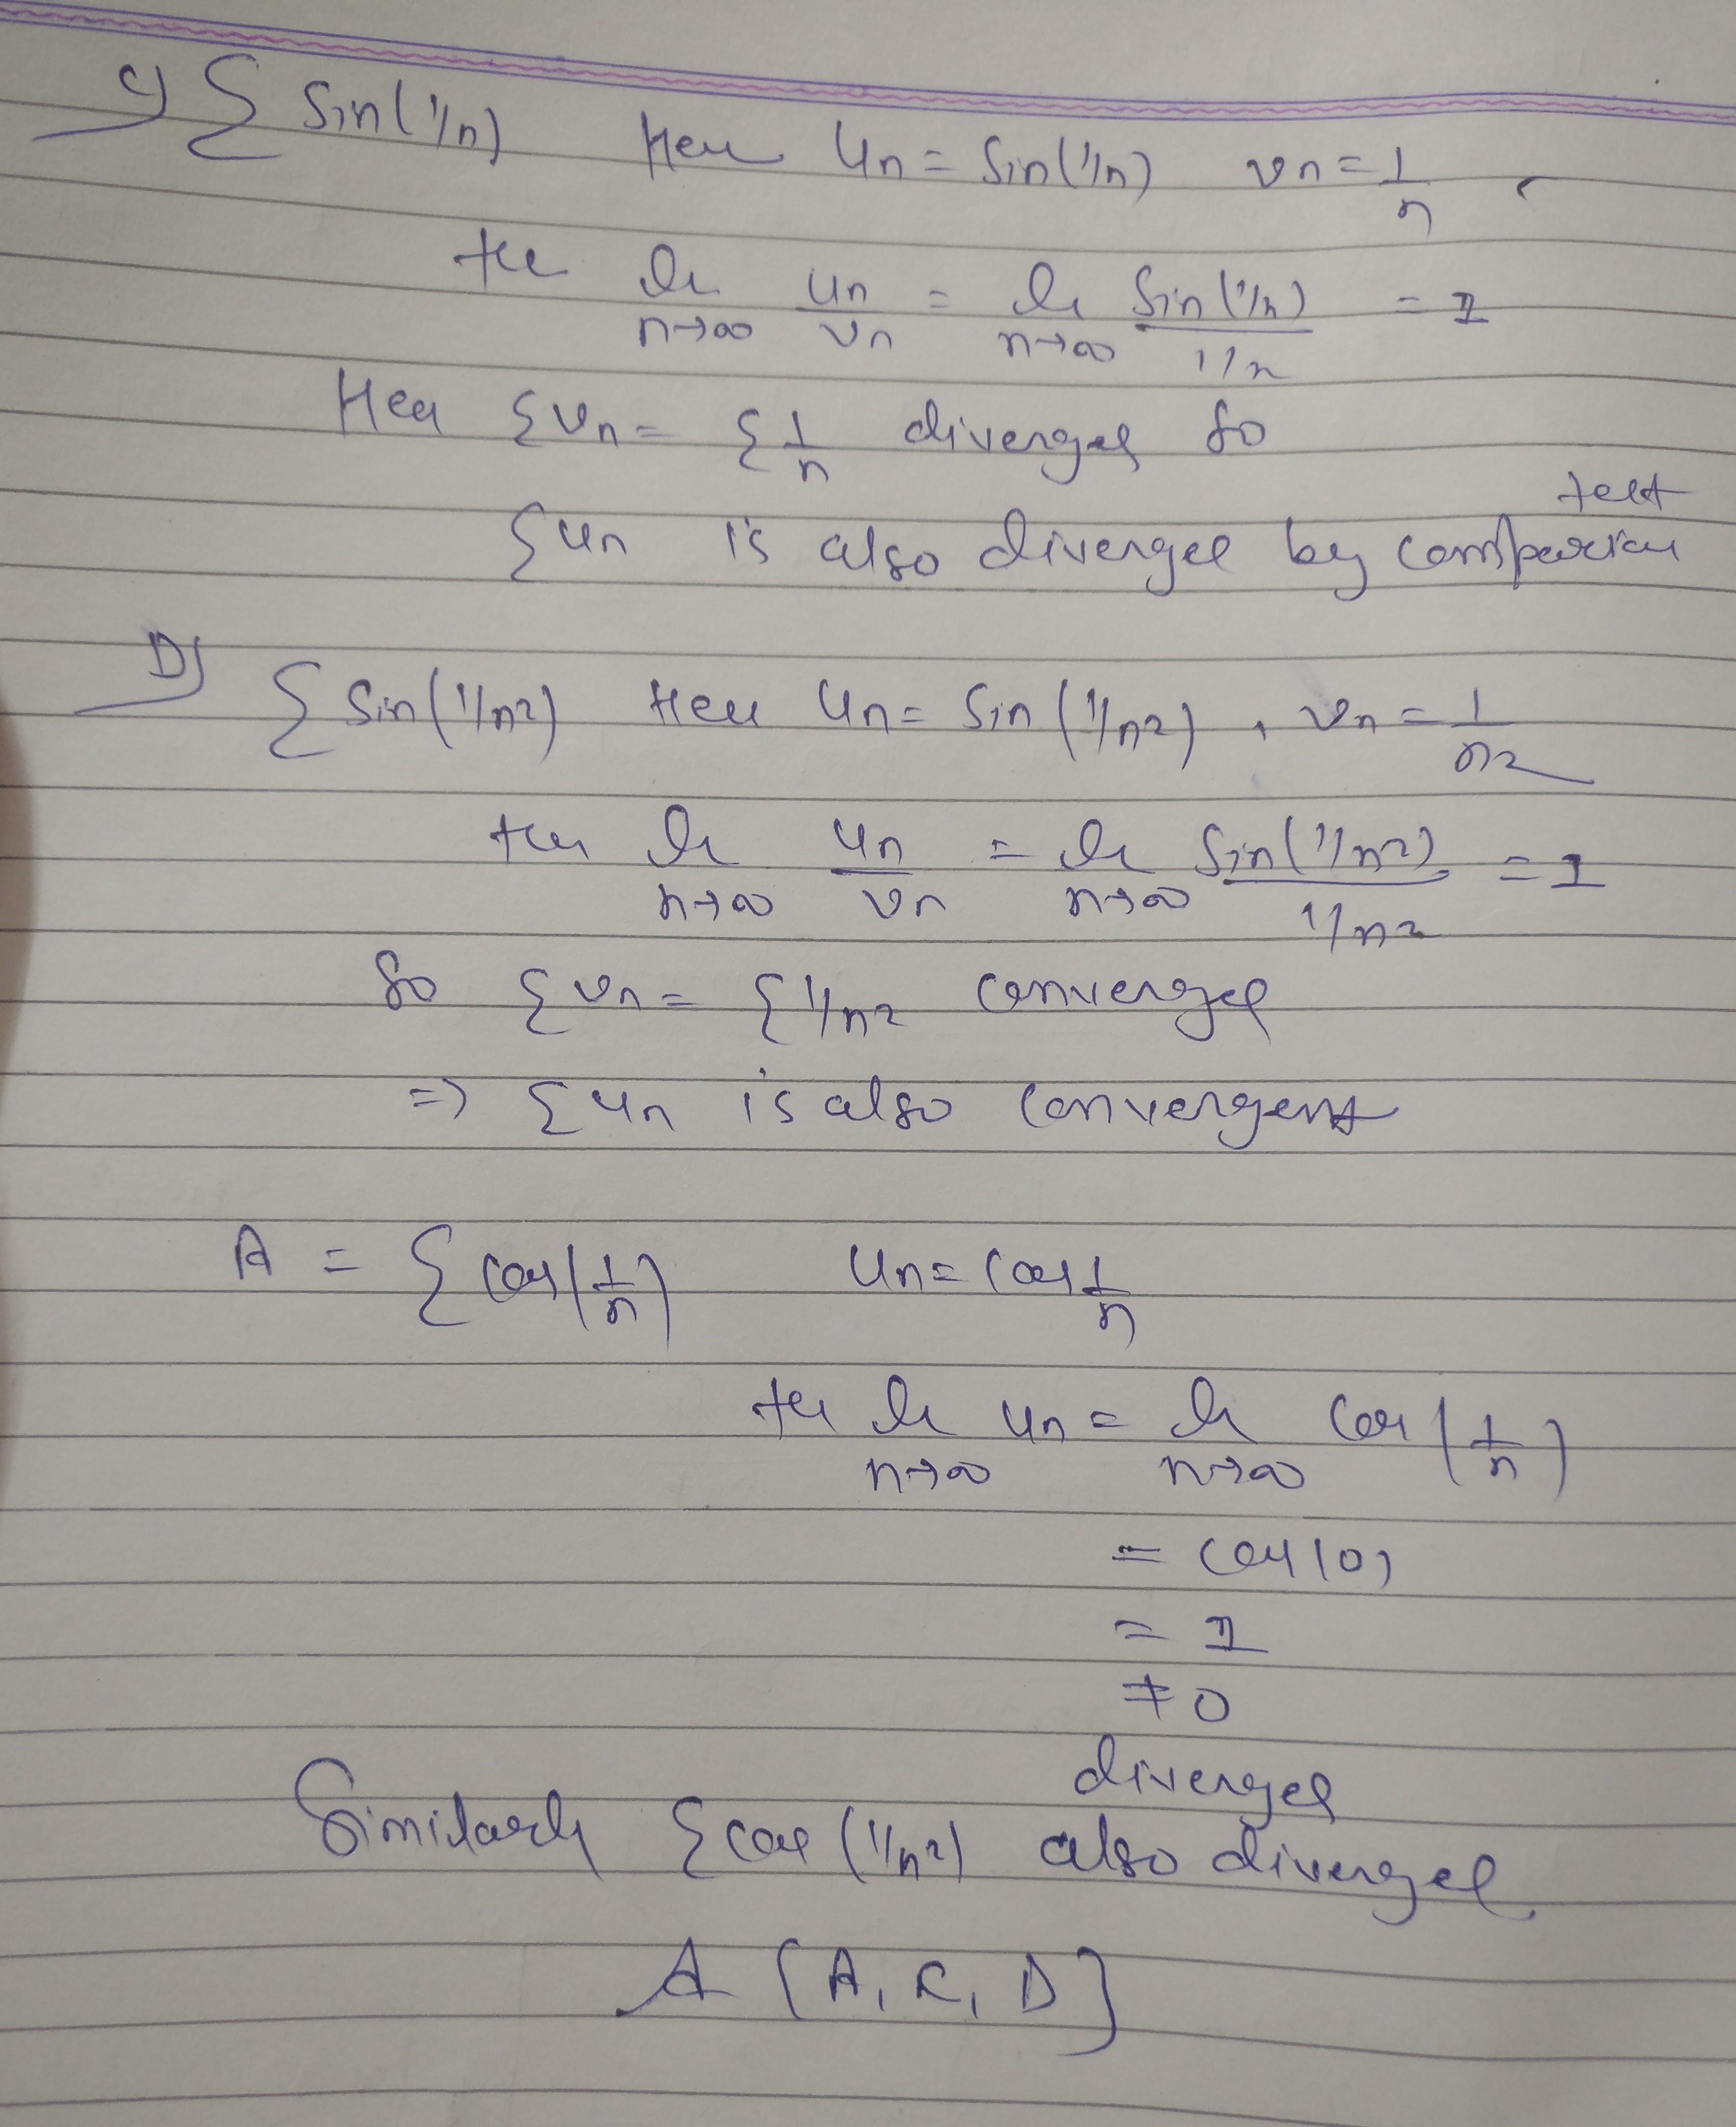 C) Σ Sin(1/n) Here Un = Sin(1/n) vn = 1/n
the lim n→∞ un/vn = lim n→∞ Sin(1/n)/1/n = 1
Here Σvn = Σ1/n diverges So
test
Σun is also diverges by comparison
D) Σ Sin(1/n2) Here Un = Sin(1/n2), vn = 1/n2
then lim n→∞ un/vn = lim n→∞ Sin(1/n2)/1/n2 = 1
So Σvn = Σ1/n2 converges
⇒ Σun is also convergent
A = Σ cos(1/n) Un = cos 1/n
then lim n→∞ un = lim n→∞ Cos(1/n)
= cos(0)
= 1
≠ 0
diverges
Similarly Σcos(1/n2) also diverges
A [A, C, D]